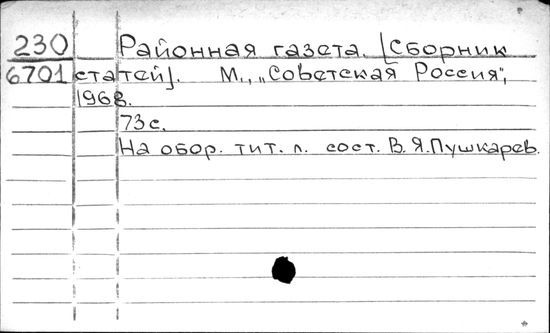 230 Районная газета. [Сборник
6701 статей]. М., „Советская Россия",
1968.
73с.
На обор. тит. л. сост. В.Я.Пушкарев.